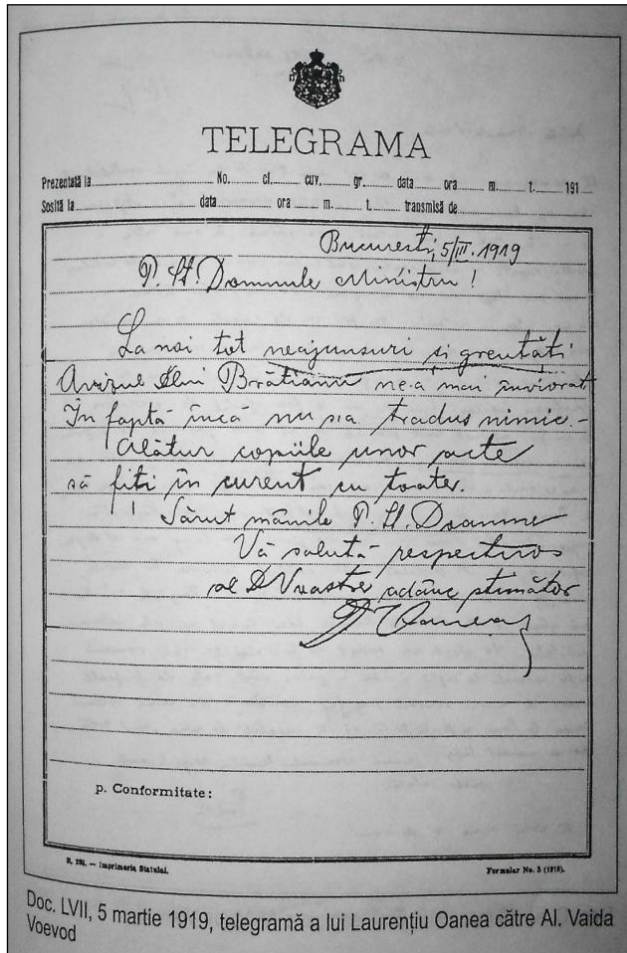 TELEGRAMA
Prezentată la No. cl. cuv. gr. data ora m. t. 191
Sosită la data ora m. t. transmisă de
Bucuresti, 5/III. 1919
P. St. Domnule Ministru!
La noi tot neajunsuri și greutăți
Avizul Brătianu ne-a mai înviorat
În faptă încă nu s'a tradus nimic.-
Alătur copiile unor acte
să fiți în curent cu toate.
Sărut mânile P. St. Doamne
Vă salută respectuos
al D Voastre adânc stimător
p. Conformitate:
R. 291. — Imprimeria Statului.
Formular No. 5 (1918).
Doc. LVII, 5 martie 1919, telegramă a lui Laurențiu Oanea către Al. Vaida
Voevod